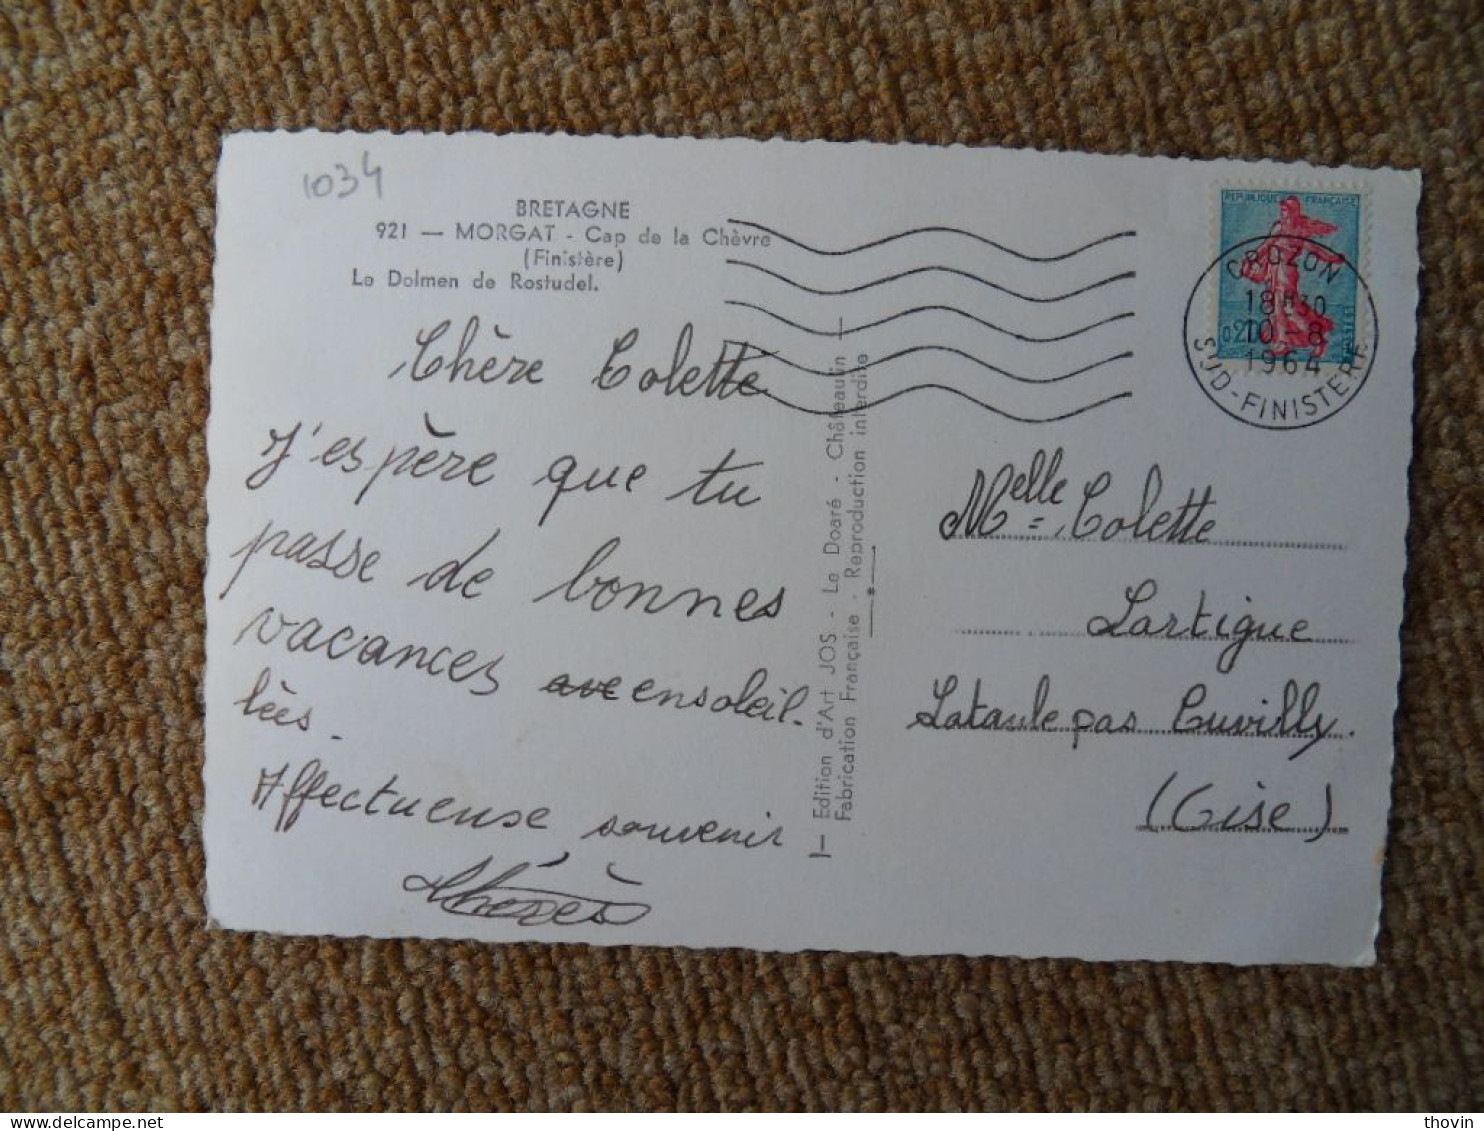 1034
BRETAGNE
921 — MORGAT - Cap de la Chèvre
(Finistère)
Le Dolmen de Rostudel.
Chère Colette
J'espère que tu
passe de bonnes
vacances ave ensoleil-
lées.
Affectueuse souvenir
Thérès
Edition d'Art JOS - Le Doaré - Châteaulin
Fabrication Française - Reproduction interdite
REPUBLIQUE FRANÇAISE
0,20
POSTES
CROZON
18H30
10-8
1964
SUD-FINISTERE
Melle Colette
Lartigue
Lataule pas Cuvilly.
(Oise)
thovin